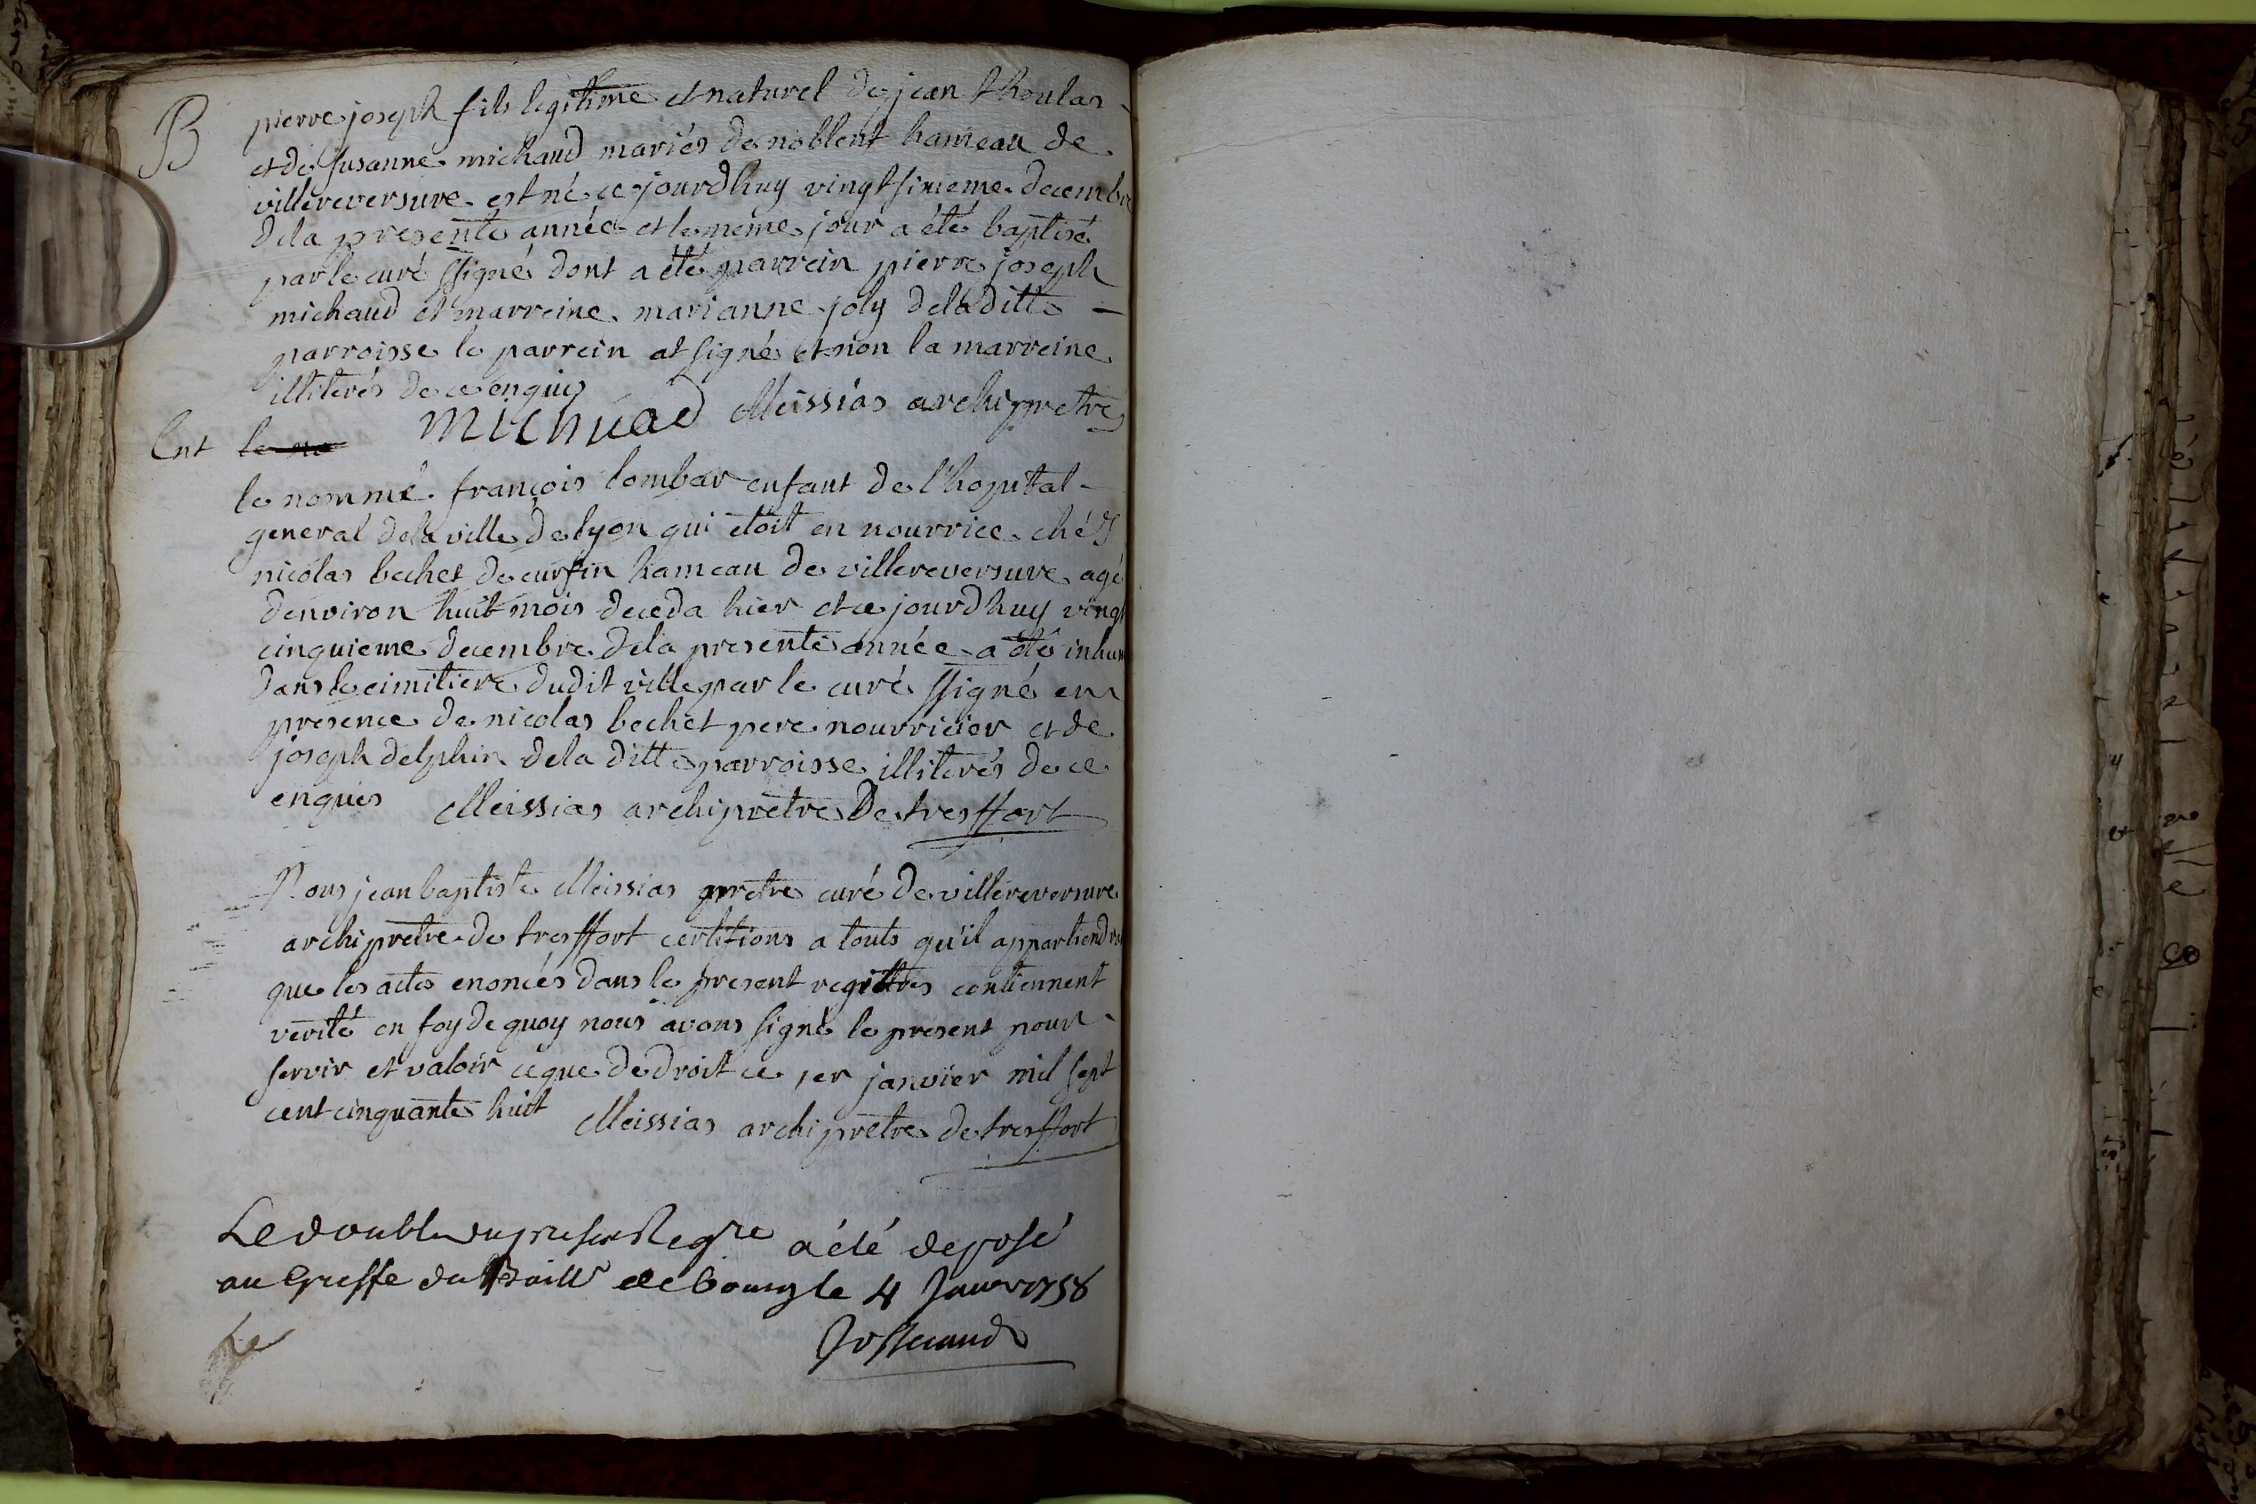 B
pierre joseph fils legitime et naturel de jean thoulas
et de susanne michaud mariés de noblent hameau de
villereversure est né ce jourdhuy vingt sixieme decembre
de la presente année et le meme jour a été baptisé
par le curé ssigné dont a été parrein pierre joseph
michaud et marreine marianne joly de la ditte
parroisse le parrein at signé et non la marreine
illiterés de ce enquis
Michuad Meissias archipretre
Ent le no
le nommé françois lombar enfant de l'hopital
general de la ville de lyon qui etoit en nourrice chés
nicolas bechet de curfin hameau de villereversure agé
denviron huit mois deceda hier et ce jourdhuy vingt
cinquieme decembre de la presente année a été inhum
dans le cimitiere dudit ville par le curé ssigné en
presence de nicolas bechet pere nourricier et de
joseph delphin de la ditte parroisse illiterés de ce
enquis Meissias archipretre De tresffort
Nous jean baptiste Meissias pretre curé de villereversure
archipretre de tresffort certifions a touts qu'il appartiendra
que les actes enoncés dans le present regittres contiennent
verité en foy de quoy nous avons signé le present pour
servir et valoir ce que de droit ce 1er janvier mil sept
cent cinquante huit Meissias archipretre de tresffort
Le double du presen Regre a été deposé
au Greffe du Baill de bourg le 4 Janvr 1758
Josserand